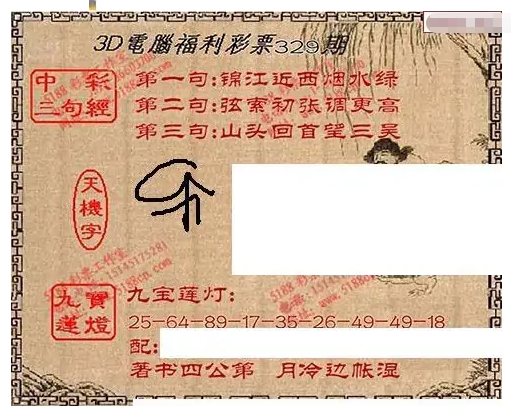 3D電腦福利彩票329期
中彩
三句經
第一句:锦江近西烟水绿
第二句:弦索初张调更高
第三句:山头回首望三吴
天機字
九寶
蓮燈
九宝莲灯:
25-64-89-17-35-26-49-49-18
配:
著书四公第 月冷边帐湿